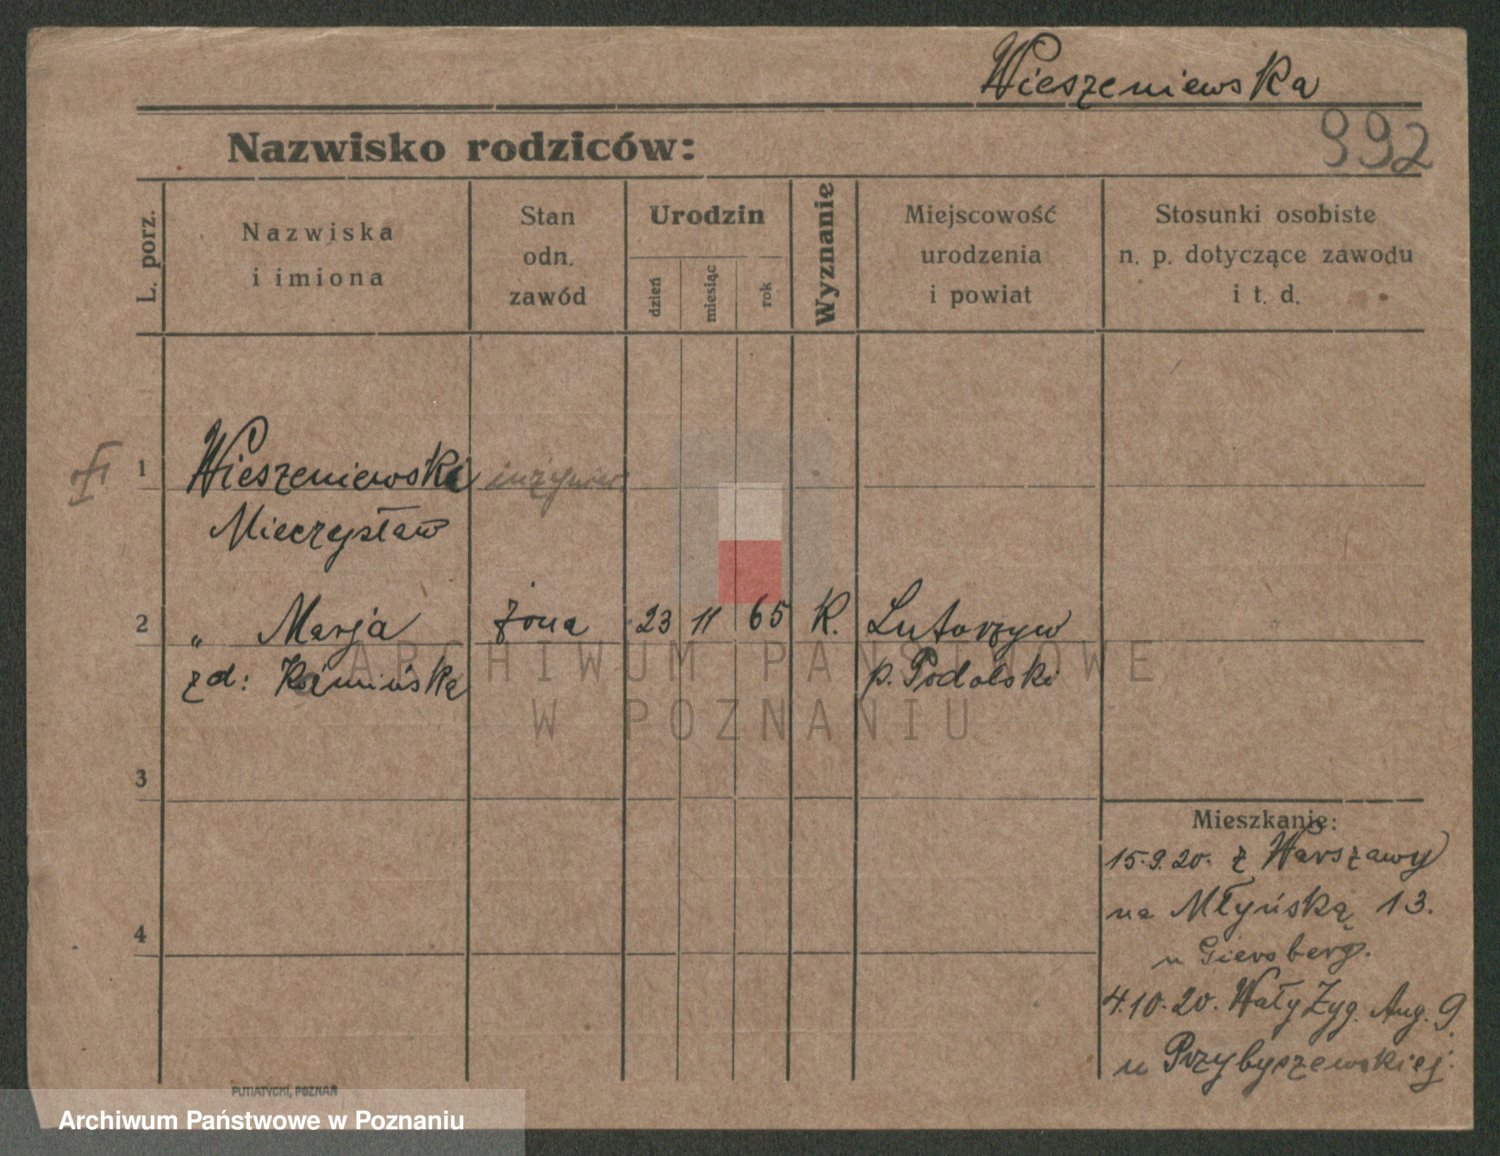 Wieszeniewska
992
Nazwisko rodziców:
L. porz.
Nazwiska
i imiona
Stan
odn.
zawód
Urodzin
dzień
miesiąc
rok
Wyznanie
Miejscowość
urodzenia
i powiat
Stosunki osobiste
n. p. dotyczące zawodu
i t. d.
1 Wieszeniewski inżynier
Mieczysław
2 „ Marja żona 23 11 65 K. Lutorzyw
zd: Kamińska p. Podolski
ARCHIWUM PAŃSTWOWE
W POZNANIU
3
Mieszkanie:
15.9.20. z Warszawy
na Młyńską 13.
4
u Giersberg.
4.10.20. Wały Zyg. Aug. 9
u Przybyszewskiej.
PUTIATYCKI, POZNAŃ
Archiwum Państwowe w Poznaniu